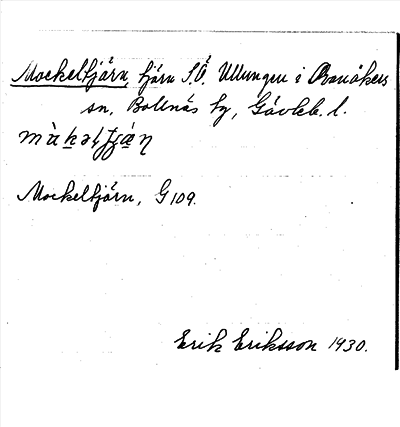 Mockeltjärn, tjärn S.Ö. Ullungen i Ramåkers
sn, Bollnäs tg, Gävleb. l.
màkəltjạ̈ṇ
Mockeltjärn, G 109.
Erik Eriksson 1930.